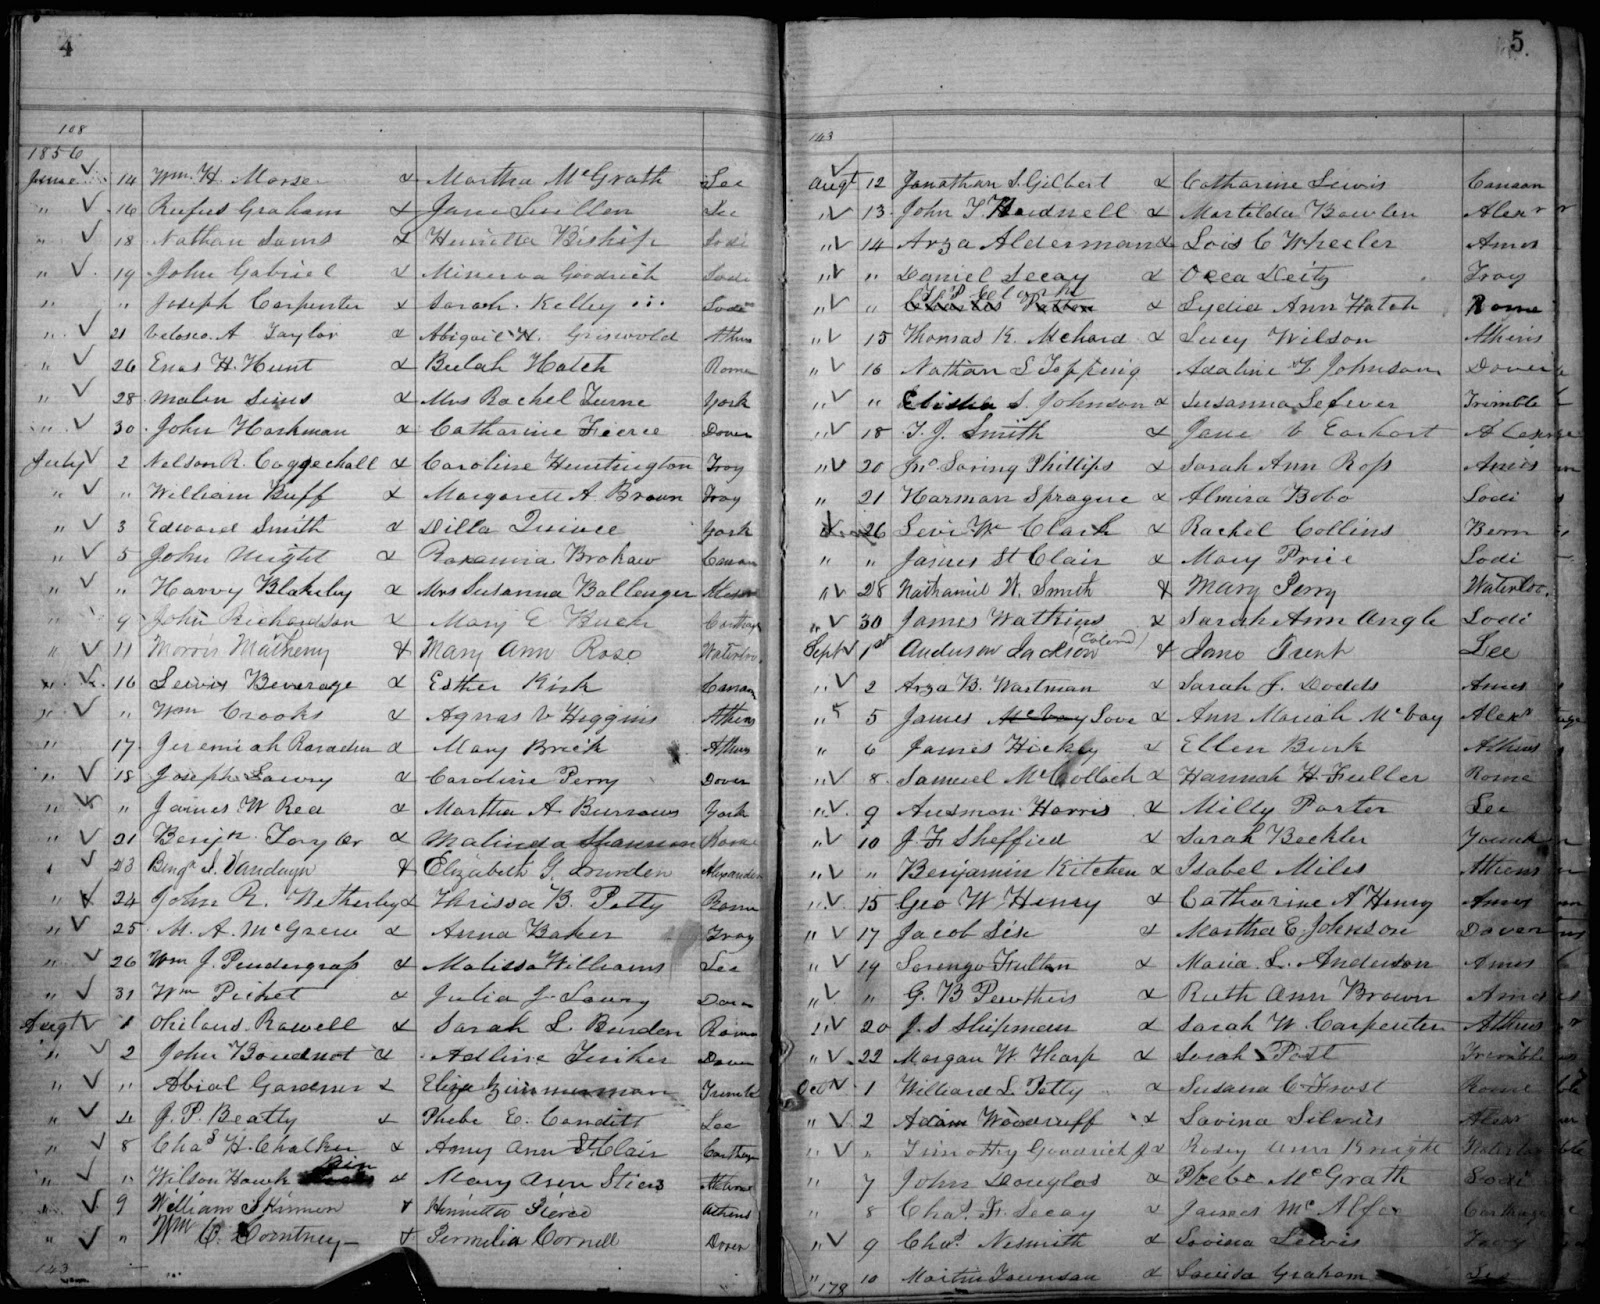 4
108
1856
June 14 Wm. H. Morse & Martha McGrath Lee
" 16 Rufus Graham & Jane Lee
" 18 Nathan Sams & Henrietta Bishop Lodi
" 19 John Gabriel & Minerva Goodrich Lodi
" " Joseph Carpenter & Sarah Kelley Lodi
" 21 A Taylor & Abigail H. Griswold Athens
" 26 Enos H. Hunt & Bulah Hatch Rome
" 28 & Mrs Rachel York
" 30 John Harkman & Catharine Fierce Dover
July 2 Nelson R. Coggeshall & Caroline Huntington Troy
" " William Buff & Margarett A. Brown Troy
" 3 Edward Smith & Dilla Quince York
" 5 John & Brokaw Canaan
" " Harvy Blakeley & Mrs Susanna Ballenger
" 9 John Richardson & Mary E Buck Carthage
" 11 Morris Matheny & Mary Ann Rose Waterloo
" 16 Lewis Beverage & Esther Kirk Canaan
" " Wm Crooks & Agnas V Higgins Athens
" 17 Jeremiah & Mary Brick Athens
" 18 Joseph Lowry & Caroline Perry Dover
" " James W Rea & Martha A. Burrows York
" 21 Benjn. Taylor & Malinda Rome
" 23 Benjn S. Vanduyn & Elizabeth G. Burden Alexander
" 24 John R. Wetherby & Thrissa B. Petty Rome
" 25 M. A. McGrew & Anna Baker Troy
" 26 Wm J. Pendergrass & Malissa Williams Lee
" 31 Wm Picket & Julia J. Lowry Dover
Augt 1 Rowell & Sarah L. Burden Rome
" 2 John Boudnot & Adline Dover
" " Abial Gardner & Eliza Zimmerman Trimble
" 4 J. P. Beatty & Phebe E. Canditt Lee
" 8 Chas H. Chalker & Amy Ann St Clair Carthage
" " Wilson Hawk & Mary Ann Stiers
" 9 William Skinner & Henrietta Pierce Athens
" " Wm C. Corntney & Permilia Cornell Dover
143
5.
143
Augt 12 Jonathan S. Gilbert & Catharine Lewis Canaan
" 13 John T. & Martilda Bowlen Alexr
" 14 Arza Alderman & Lois C Wheeler Ames
" " Daniel Secoy & Orea Deitz Troy
" " & Lydia Ann Hatch Rome
" 15 Thomas K. Mchard & Lucy Wilson Athens
" 16 Nathan S Topping Adaline F Johnson Dover
" " Elisha S Johnson & Susanna Lefever Trimble
" 18 T. J. Smith & Jane C Earhart
" 20 Loring Phillips & Sarah Ann Ross Ames
" 21 Harman Sprague & Almira Bobo Lodi
" 26 Levi W Clark & Rachel Collins Bern
" " James St Clair & Mary Price Lodi
" 28 Nathaniel W. Smith & Mary Perry Waterloo.
" 30 James Watkins & Sarah Ann Angle Lodi
Sept 1st Anderson Jackson (Colored) & Jane Trent Lee
" 2 Arza B. Wartman & Sarah J. Dodds Ames
" 5 James McVay Love & Ann Mariah McVay Alexr
" 6 James Hickey & Ellen Burk Athens
" 8. Samuel McCollach & Hannah H Fuller Rome
" 9 Harris & Milly Porter Lee
" 10 J. F. Sheffield & Sarah Beckler
" " Benjamin Kitchen & Isabel Miles Athens
" 15 Geo W Henry & Catharine A Henry Ames
" 17 Jacob Six & Martha E. Johnson Dover
" 19 Lorenzo Fulton & Maria. L. Anderson Ames
" " G. B & Ruth Ann Brown Ames
" 20 J. S Shipman & Sarah W. Carpenter Athens
" 22 Morgan W Tharp & Sarah Post Trimble
Oct 1 Williard L. Petty & Susana C Frost Rome
" 2 Adam Woodruff & Lavina Silvais Alexr
" " Timothy Goodrich Jr & Rosey Ann Knight Waterloo
" 7 John Douglas & Phebe McGrath Lodi
" 8 Chas. F. Secoy & Mc Carthage
" 9 Chas. Nesmith & Lovina Lewis Troy
" 10 Martin Townsan & Louisa Graham Lee
178